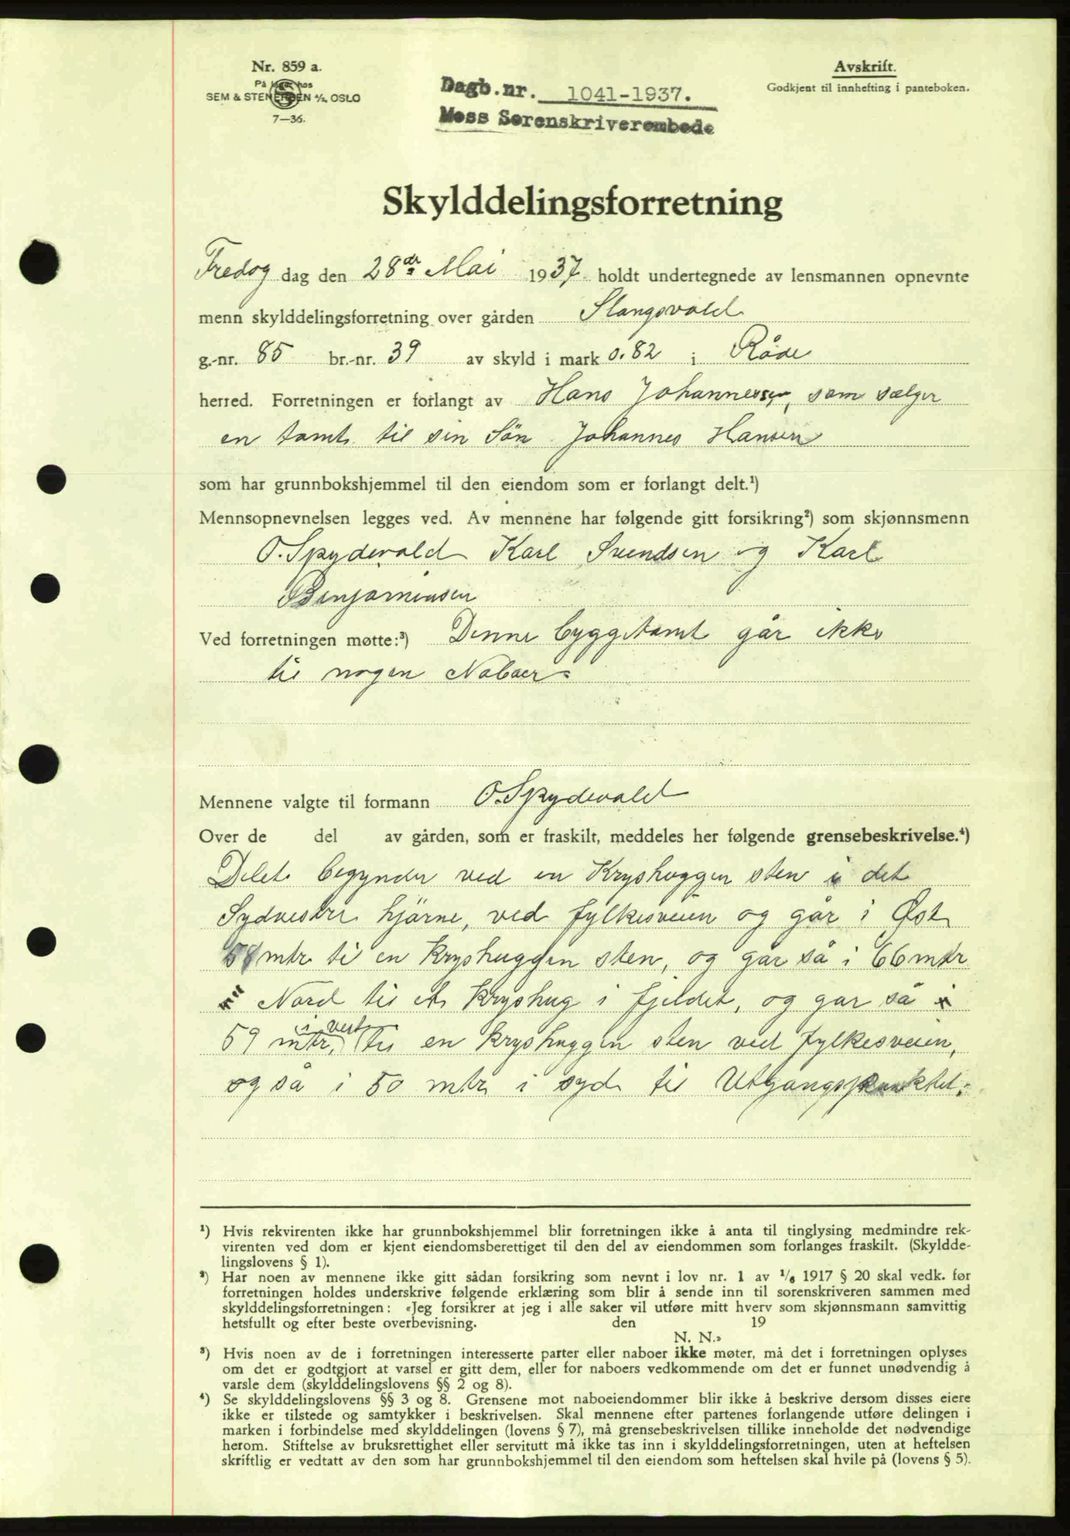 Nr. 859 a.
På lager hos
SEM & STENERSEN A/S, OSLO
7—36.
Dagb.nr. 1041-1937.
Moss Sorenskriverembede
Avskrift.
Godkjent til innhefting i panteboken.
Skylddelingsforretning
Fredag dag den 28de Mai 1937. holdt undertegnede av lensmannen opnevnte
menn skylddelingsforretning over gården Slangsvold
g.-nr. 85 br.-nr. 39 av skyld i mark 0.82 i Råde
herred. Forretningen er forlangt av Hans Johannessen, som sælger
en tomt til sin Søn Johannes Hansen
som har grunnbokshjemmel til den eiendom som er forlangt delt.¹)
Mennsopnevnelsen legges ved. Av mennene har følgende gitt forsikring²) som skjønnsmenn
O. Spydevold Karl Svendsen og Karl
Benjaminsen
Ved forretningen møtte:³) Denne byggetomt går ikke
til nogen Naboer.
Mennene valgte til formann O. Spydevold
Over de del av gården, som er fraskilt, meddeles her følgende grensebeskrivelse.⁴)
Delet begynder ved en Kryshuggen sten i det
Sydvestre hjørne, ved fylkesveien og går i Øst
58 mtr til en kryshuggen sten, og går så i 66 mtr
Nord til et kryshug i fjeldet, og gar så i
59 mtr, i vest til en kryshuggen sten ved fylkesveien,
og så i 50 mtr i syd til Utgangspunktet.
¹) Hvis rekvirenten ikke har grunnbokshjemmel blir forretningen ikke å anta til tinglysing medmindre rek-
virenten ved dom er kjent eiendomsberettiget til den del av eiendommen som forlanges fraskilt. (Skyldde-
lingslovens § 1).
²) Har noen av mennene ikke gitt sådan forsikring som nevnt i lov nr. 1 av 1/6 1917 § 20 skal vedk. før
forretningen holdes underskrive følgende erklæring som blir å sende inn til sorenskriveren sammen med
skylddelingsforretningen: «Jeg forsikrer at jeg i alle saker vil utføre mitt hverv som skjønnsmann samvittig
hetsfullt og efter beste overbevisning. den 19
N. N.»
³) Hvis noen av de i forretningen interesserte parter eller naboer ikke møter, må det i forretningen oplyses
om det er godtgjort at varsel er gitt dem, eller for naboers vedkommende om det er funnet unødvendig å
varsle dem (skylddelingslovens §§ 2 og 8).
⁴) Se skylddelingslovens §§ 3 og 8. Grensene mot naboeiendommer blir ikke å beskrive dersom disses eiere
ikke er tilstede og samtykker i beskrivelsen. Skal mennene efter partenes forlangende utføre delingen i
marken i forbindelse med skylddelingen (lovens § 7), må grensebeskrivelsen tillike inneholde det nødvendige
herom. Stiftelse av bruksrettighet eller servitutt må ikke tas inn i skylddelingsforretningen, uten at heftelsen
skriftlig er vedtatt av den som har grunnbokshjemmel til den eiendom som heftelsen skal hvile på (lovens § 5).